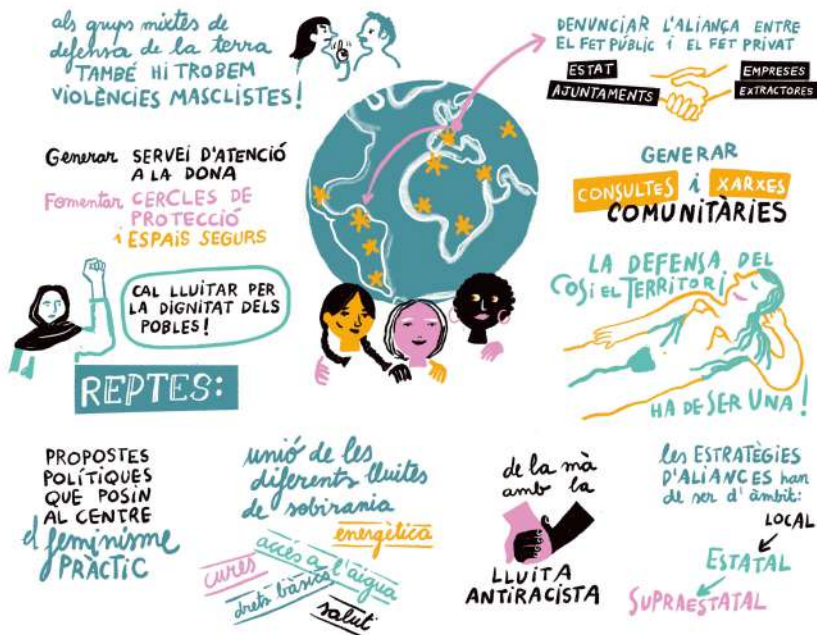 als grups mixtes de
defensa de la terra
TAMBÉ HI TROBEM
VIOLÈNCIES MASCLISTES!
DENUNCIAR L'ALIANÇA ENTRE
EL FET PÚBLIC i EL FET PRIVAT
ESTAT
AJUNTAMENTS
EMPRESES
EXTRACTORES
Generar SERVEI D'ATENCIÓ
A LA DONA
Fomentar CERCLES DE
PROTECCIÓ
i ESPAIS SEGURS
GENERAR
CONSULTES i XARXES
COMUNITÀRIES
CAL LLUITAR PER
LA DIGNITAT DELS
POBLES!
LA DEFENSA DEL
COS i EL TERRITORI
HA DE SER UNA!
REPTES:
PROPOSTES
POLÍTIQUES
QUE POSIN
AL CENTRE
el feminisme
PRÀCTIC
unió de les
diferents lluites
de sobirania
energètica
accés a l'aigua
cures
drets bàsics
salut
de la mà
amb la
LLUITA
ANTIRACISTA
les ESTRATÈGIES
D'ALIANCES han
de ser d'àmbit:
LOCAL
ESTATAL
SUPRAESTATAL